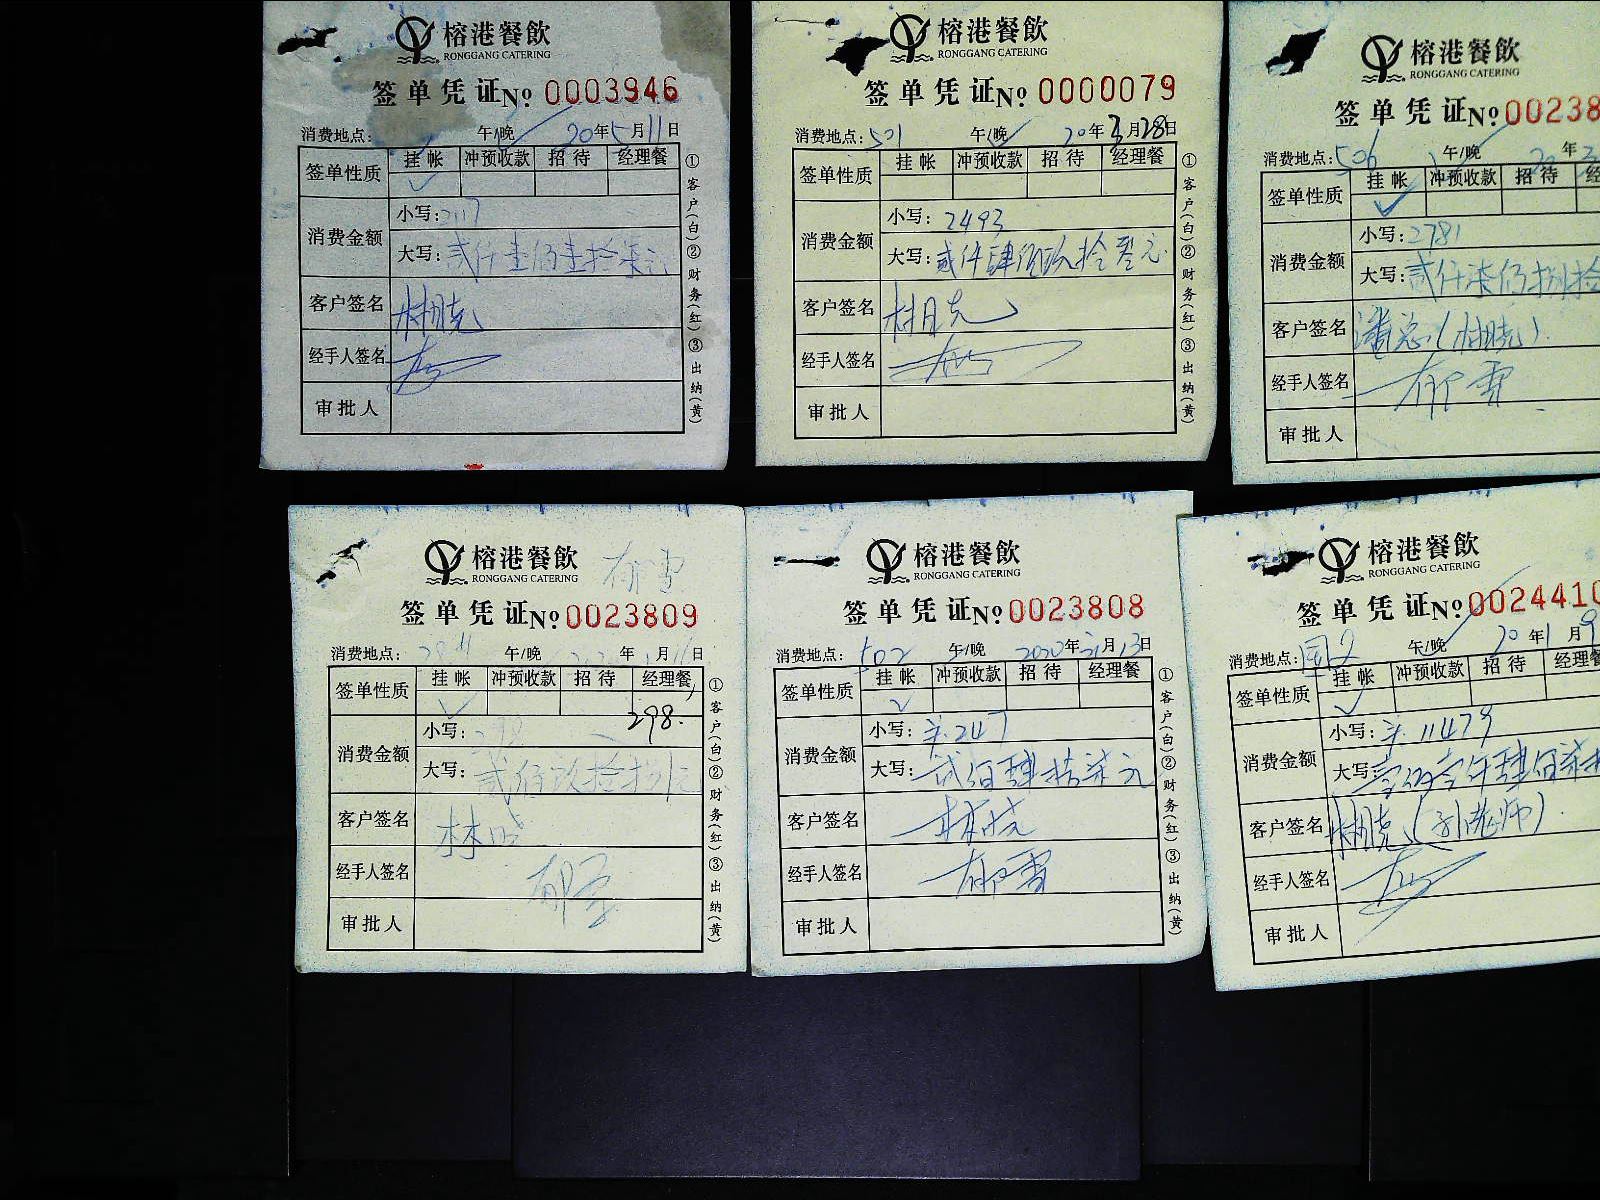 榕港餐飲
RONGGANG CATERING
签单凭证№ 0003946
消费地点: 午/晚 20年5月11日
签单性质 挂帐 冲预收款 招待 经理餐
消费金额 小写: 2117
大写: 贰仟壹佰壹拾柒元
客户签名
经手人签名
审批人
①客户(白)②财务(红)③出纳(黄)
榕港餐飲
RONGGANG CATERING
签单凭证№ 0000079
消费地点: 501 午/晚 20年3月28日
签单性质 挂帐 冲预收款 招待 经理餐
消费金额 小写: 2493
大写: 贰仟肆佰玖拾叁元
客户签名
经手人签名
审批人
①客户(白)②财务(红)③出纳(黄)
榕港餐飲
RONGGANG CATERING
签单凭证№ 00238
消费地点: 506 午/晚 20年
签单性质 挂帐 冲预收款 招待 经
消费金额 小写: 2781
大写: 贰仟柒佰捌拾
客户签名 潘总(林晓)
经手人签名 郁雪
审批人
榕港餐飲 郁雪
RONGGANG CATERING
签单凭证№ 0023809
消费地点: 午/晚 年 月 日
签单性质 挂帐 冲预收款 招待 经理餐
298.
消费金额 小写: 298
大写: 贰佰玖拾捌元
客户签名 林晓
经手人签名 郁雪
审批人
①客户(白)②财务(红)③出纳(黄)
榕港餐飲
RONGGANG CATERING
签单凭证№ 0023808
消费地点: 502 午/晚 2020年 月13日
签单性质 挂帐 冲预收款 招待 经理餐
消费金额 小写: 247
大写: 贰佰肆拾柒元
客户签名 林晓
经手人签名 郁雪
审批人
①客户(白)②财务(红)③出纳(黄)
榕港餐飲
RONGGANG CATERING
签单凭证№ 0024410
消费地点: 午/晚 20年1月9
签单性质 挂帐 冲预收款 招待 经理餐
消费金额 小写: 11479
大写:
客户签名
经手人签名
审批人